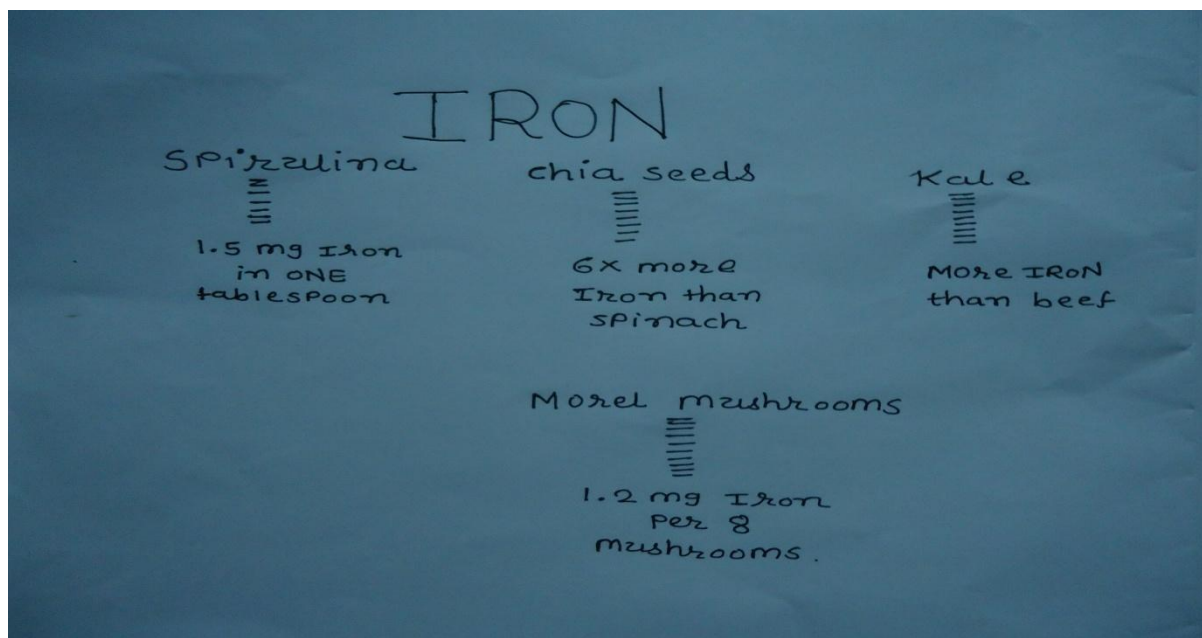 IRON
Spirulina
1.5 mg Iron
in ONE
tablespoon
chia seeds
6x more
Iron than
spinach
Kale
More IRON
than beef
Morel mushrooms
1.2 mg Iron
per 8
mushrooms.